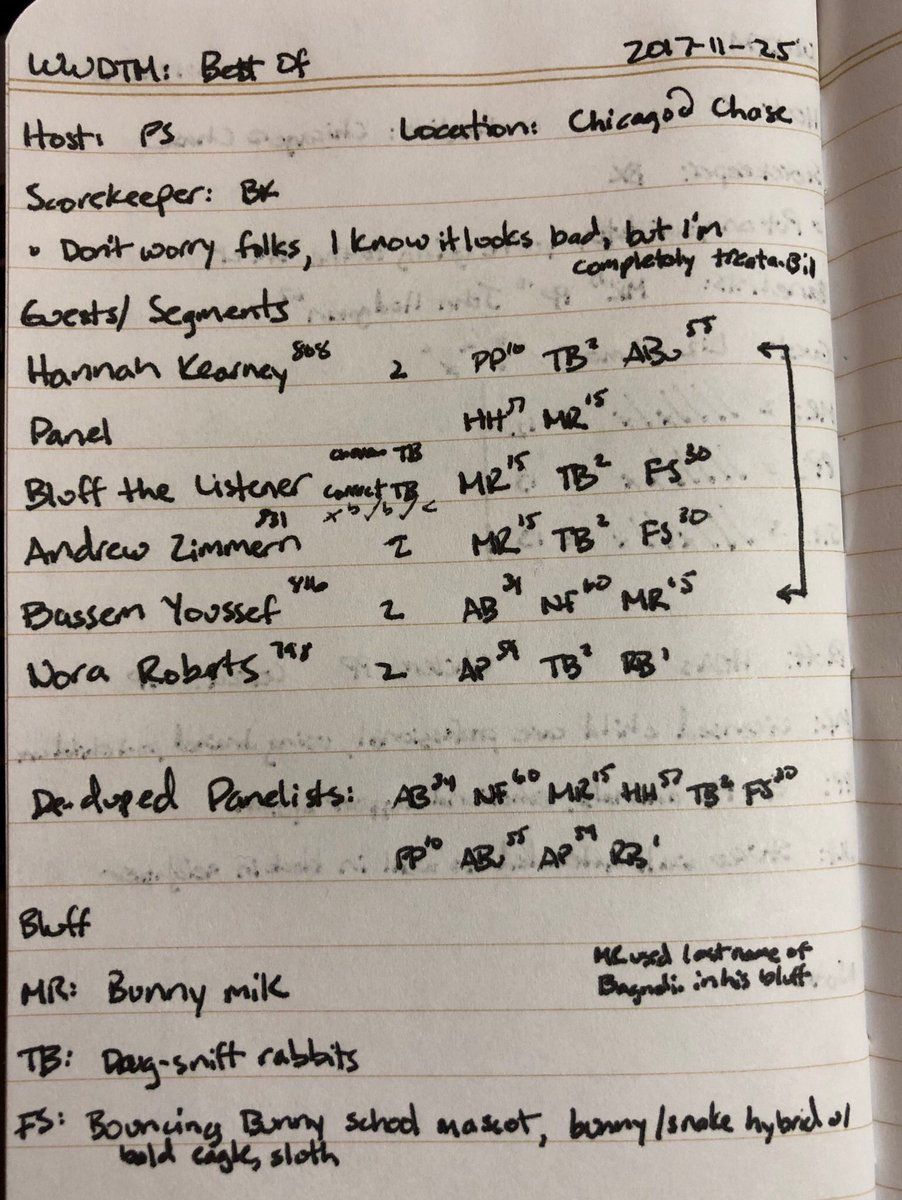 WWDTM: Best Of 2017-11-25
Host: PS Location: Chicago @ Chase
Scorekeeper: BK
• Don't worry folks, I know it looks bad, but I'm
completely treata-Bill
Guests/ Segments
Hannah Kearney 808 2 PP10 TB2 ABu55
Panel HH57 MR15
chosen TB
Bluff the Listener correct TB MR15 TB2 FS30
x b ✓ b ✓ c
Andrew Zimmern 831 2 MR15 TB2 FS30
Bassem Youssef 816 2 AB34 NF60 MR15
Nora Roberts 798 2 AP59 TB2 RB1
De-duped Panelists: AB34 NF60 MR15 HH57 TB2 FS30
PP10 ABu55 AP59 RB1
Bluff
MR used last name of
MR: Bunny milk
in his bluff.
TB: Drug-sniff rabbits
FS: Bouncing Bunny school mascot, bunny/snake hybrid w/
bald eagle, sloth